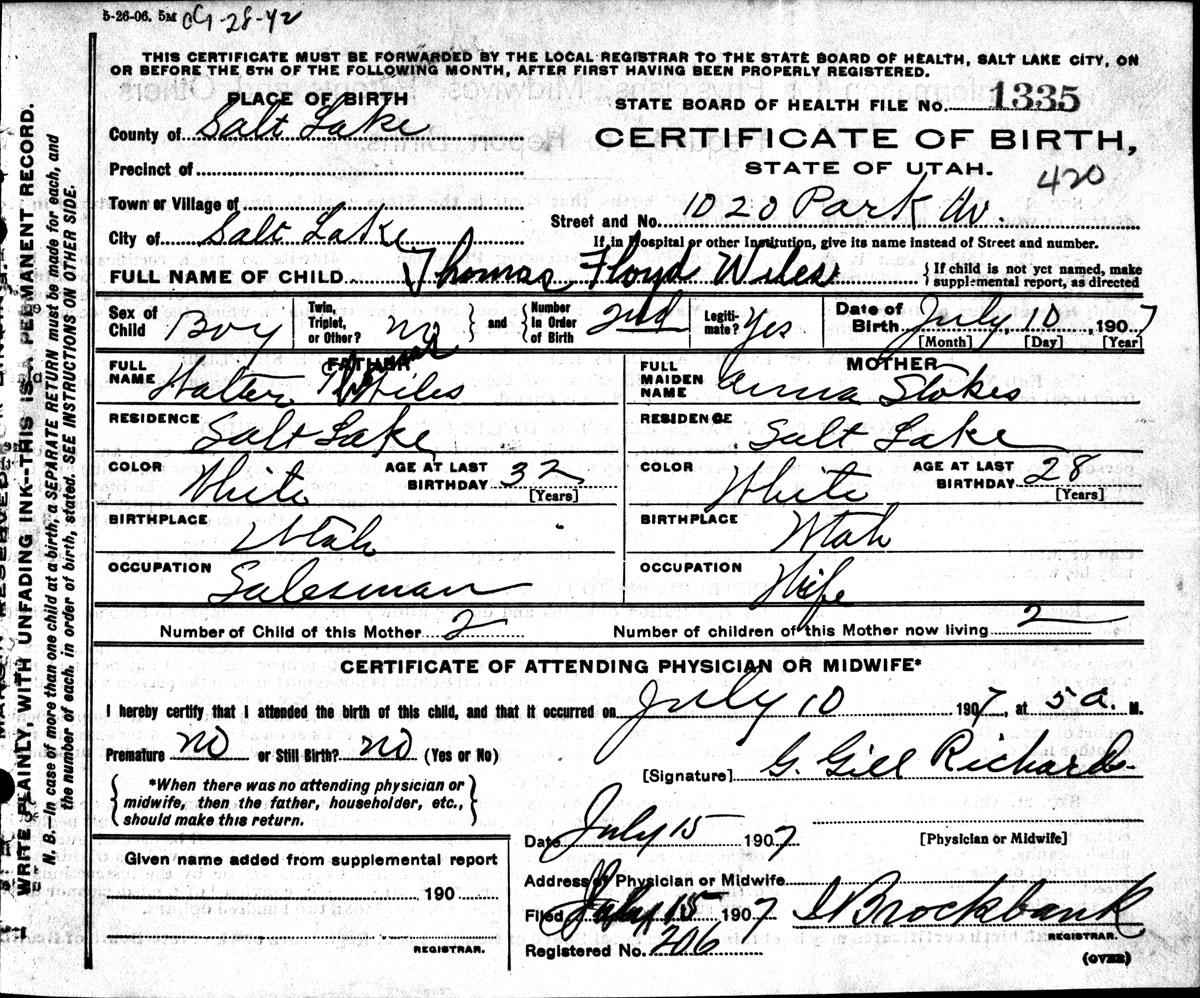 5-26-06. 5M Oct-28-42
THIS CERTIFICATE MUST BE FORWARDED BY THE LOCAL REGISTRAR TO THE STATE BOARD OF HEALTH, SALT LAKE CITY, ON
OR BEFORE THE 5TH OF THE FOLLOWING MONTH, AFTER FIRST HAVING BEEN PROPERLY REGISTERED.
PLACE OF BIRTH
STATE BOARD OF HEALTH FILE No. 1335
County of Salt Lake
CERTIFICATE OF BIRTH,
Precinct of
STATE OF UTAH.
420
Town or Village of
Street and No. 1020 Park Av.
City of Salt Lake
If in Hospital or other Institution, give its name instead of Street and number.
FULL NAME OF CHILD Thomas Floyd Wiles
{If child is not yet named, make
supplemental report, as directed
Sex of Child Boy
Twin, Triplet, or Other? no } and { Number in Order of Birth 2nd
Legitimate? Yes
Date of Birth July 10, 1907
[Month] [Day] [Year]
FATHER
FULL NAME Walter Thomas Wiles
RESIDENCE Salt Lake
COLOR White AGE AT LAST BIRTHDAY 32
[Years]
BIRTHPLACE Utah
OCCUPATION Salesman
MOTHER
FULL MAIDEN NAME Anna Stokes
RESIDENCE Salt Lake
COLOR White AGE AT LAST BIRTHDAY 28
[Years]
BIRTHPLACE Utah
OCCUPATION Wife
Number of Child of this Mother 2 Number of children of this Mother now living 2
CERTIFICATE OF ATTENDING PHYSICIAN OR MIDWIFE*
I hereby certify that I attended the birth of this child, and that it occurred on July 10 1907, at 5 a. M.
Premature no or Still Birth? no (Yes or No)
[Signature] G. Gill Richards
{*When there was no attending physician or
midwife, then the father, householder, etc.,
should make this return.}
Date July 15 1907
[Physician or Midwife]
Given name added from supplemental report
190
REGISTRAR.
Address of Physician or Midwife
Filed July 15 1907 S Brockbank
REGISTRAR.
Registered No. 206
(OVER)
WRITE PLAINLY, WITH UNFADING INK—THIS IS A PERMANENT RECORD.
N. B.—In case of more than one child at a birth, a SEPARATE RETURN must be made for each, and
the number of each, in order of birth, stated. SEE INSTRUCTIONS ON OTHER SIDE.